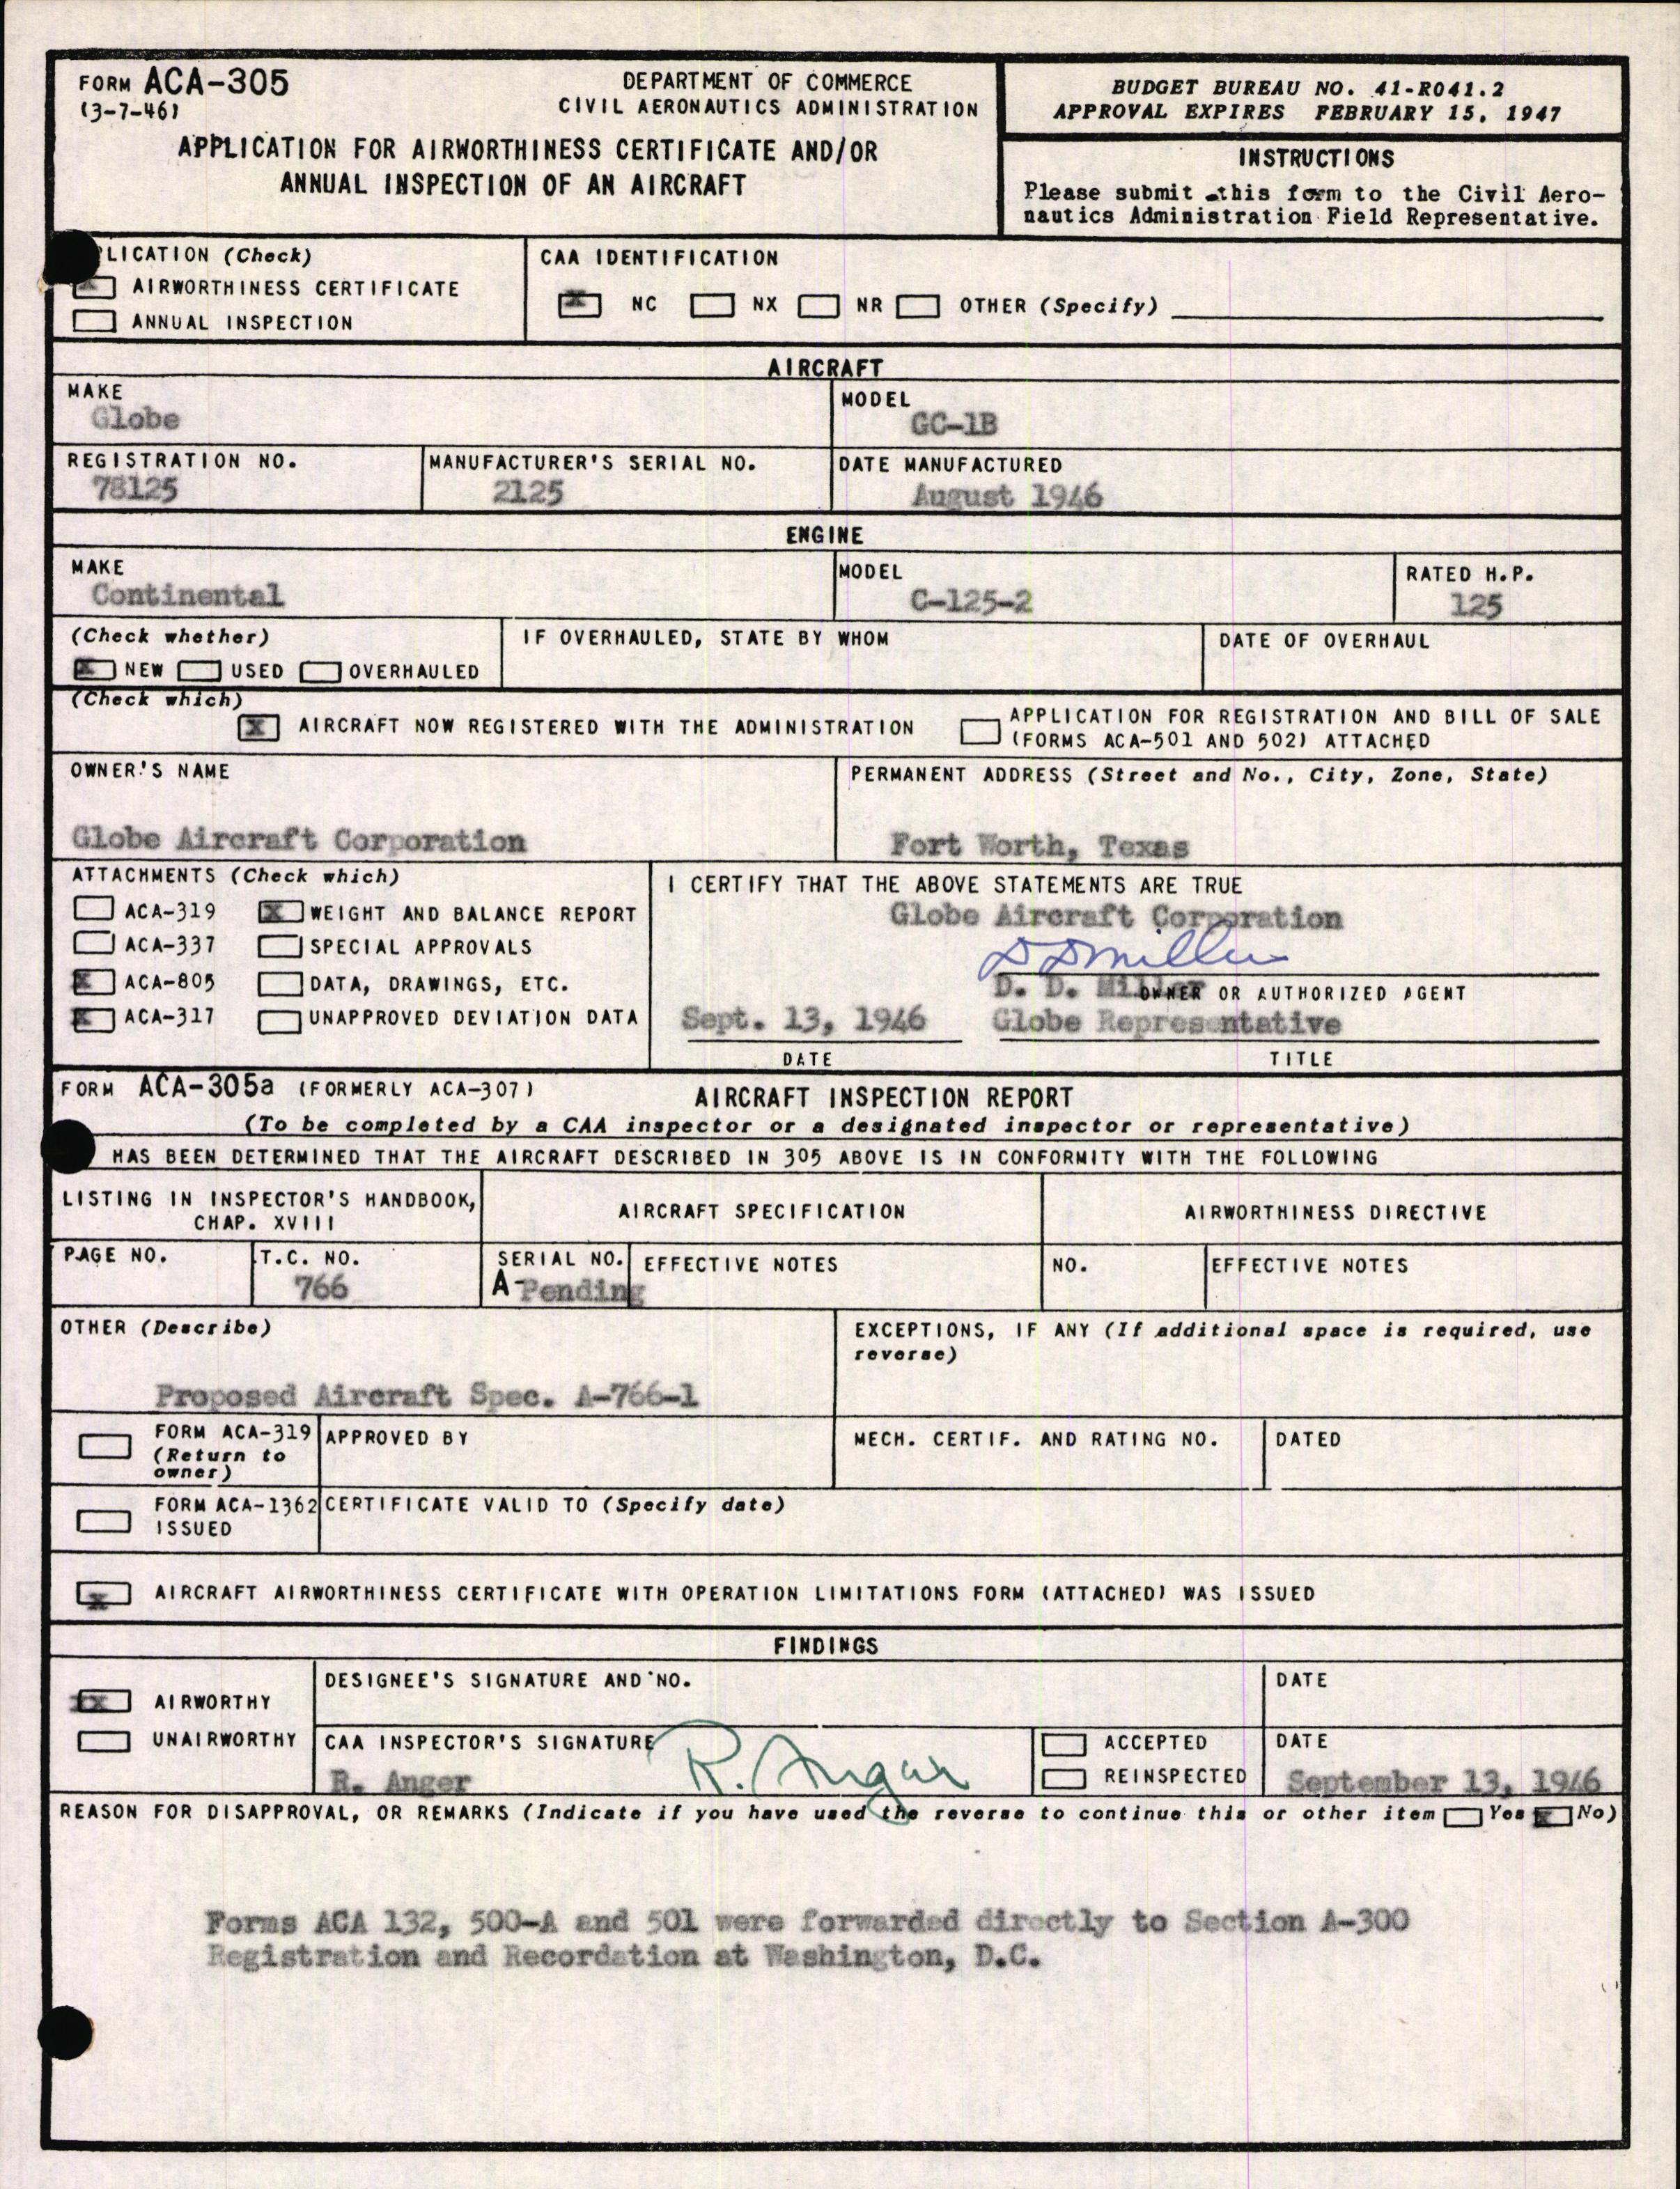 FORM ACA-305
(3-7-46)
DEPARTMENT OF COMMERCE
CIVIL AERONAUTICS ADMINISTRATION
APPLICATION FOR AIRWORTHINESS CERTIFICATE AND/OR
ANNUAL INSPECTION OF AN AIRCRAFT
BUDGET BUREAU NO. 41-R041.2
APPROVAL EXPIRES FEBRUARY 15, 1947
INSTRUCTIONS
Please submit this form to the Civil Aero-
nautics Administration Field Representative.
PLICATION (Check)
X AIRWORTHINESS CERTIFICATE
ANNUAL INSPECTION
CAA IDENTIFICATION
X NC NX NR OTHER (Specify)
AIRCRAFT
MAKE
Globe
MODEL
GC-1B
REGISTRATION NO.
78125
MANUFACTURER'S SERIAL NO.
2125
DATE MANUFACTURED
August 1946
ENGINE
MAKE
Continental
MODEL
C-125-2
RATED H.P.
125
(Check whether)
X NEW USED OVERHAULED
IF OVERHAULED, STATE BY WHOM
DATE OF OVERHAUL
(Check which)
X AIRCRAFT NOW REGISTERED WITH THE ADMINISTRATION
APPLICATION FOR REGISTRATION AND BILL OF SALE
(FORMS ACA-501 AND 502) ATTACHED
OWNER'S NAME
Globe Aircraft Corporation
PERMANENT ADDRESS (Street and No., City, Zone, State)
Fort Worth, Texas
ATTACHMENTS (Check which)
ACA-319 X WEIGHT AND BALANCE REPORT
ACA-337 SPECIAL APPROVALS
X ACA-805 DATA, DRAWINGS, ETC.
X ACA-317 UNAPPROVED DEVIATION DATA
I CERTIFY THAT THE ABOVE STATEMENTS ARE TRUE
Globe Aircraft Corporation
D D Miller
D. D. Miller OWNER OR AUTHORIZED AGENT
Sept. 13, 1946 Globe Representative
DATE TITLE
FORM ACA-305a (FORMERLY ACA-307) AIRCRAFT INSPECTION REPORT
(To be completed by a CAA inspector or a designated inspector or representative)
HAS BEEN DETERMINED THAT THE AIRCRAFT DESCRIBED IN 305 ABOVE IS IN CONFORMITY WITH THE FOLLOWING
LISTING IN INSPECTOR'S HANDBOOK,
CHAP. XVIII
AIRCRAFT SPECIFICATION
AIRWORTHINESS DIRECTIVE
PAGE NO.
T.C. NO.
766
SERIAL NO.
A-Pending
EFFECTIVE NOTES
NO.
EFFECTIVE NOTES
OTHER (Describe)
Proposed Aircraft Spec. A-766-1
EXCEPTIONS, IF ANY (If additional space is required, use
reverse)
FORM ACA-319
(Return to
owner)
APPROVED BY
MECH. CERTIF. AND RATING NO.
DATED
FORM ACA-1362
ISSUED
CERTIFICATE VALID TO (Specify date)
X AIRCRAFT AIRWORTHINESS CERTIFICATE WITH OPERATION LIMITATIONS FORM (ATTACHED) WAS ISSUED
FINDINGS
X AIRWORTHY
UNAIRWORTHY
DESIGNEE'S SIGNATURE AND NO.
DATE
CAA INSPECTOR'S SIGNATURE
R. Anger
R. Anger
ACCEPTED
REINSPECTED
DATE
September 13, 1946
REASON FOR DISAPPROVAL, OR REMARKS (Indicate if you have used the reverse to continue this or other item Yes X No)
Forms ACA 132, 500-A and 501 were forwarded directly to Section A-300
Registration and Recordation at Washington, D.C.